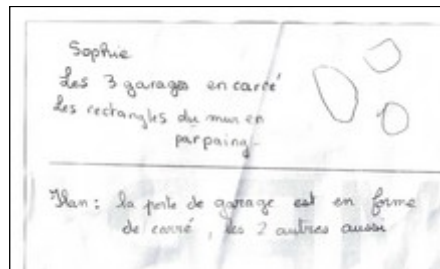 Sophie
Les 3 garages en carré
Les rectangles du mur en
parpaing.
Ilan : la porte de garage est en forme
de carré, les 2 autres aussi